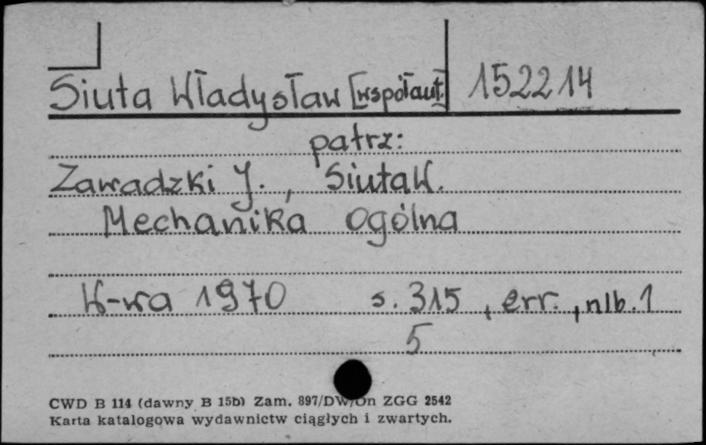 Siuta Władysław [współaut.] 152214
patrz:
Zawadzki J., Siuta W.
Mechanika ogólna
W-wa 1970 s. 315, err., nlb. 1
5
CWD B 114 (dawny B 15b) Zam. 897/DW/On ZGG 2542
Karta katalogowa wydawnictw ciągłych i zwartych.